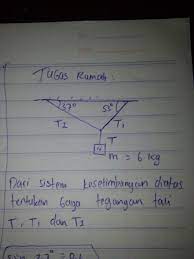 Tugas Rumah:
37° 53°
T2 T1
T
m = 6 kg
Dari sistem kesetimbangan diatas
tentukan gaya tegangan tali
T, T1 dan T2